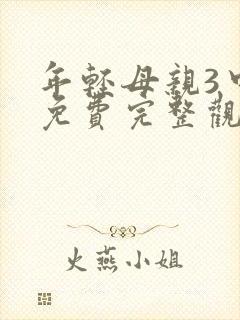 年輕母親3
免費完整觀
火燕小姐